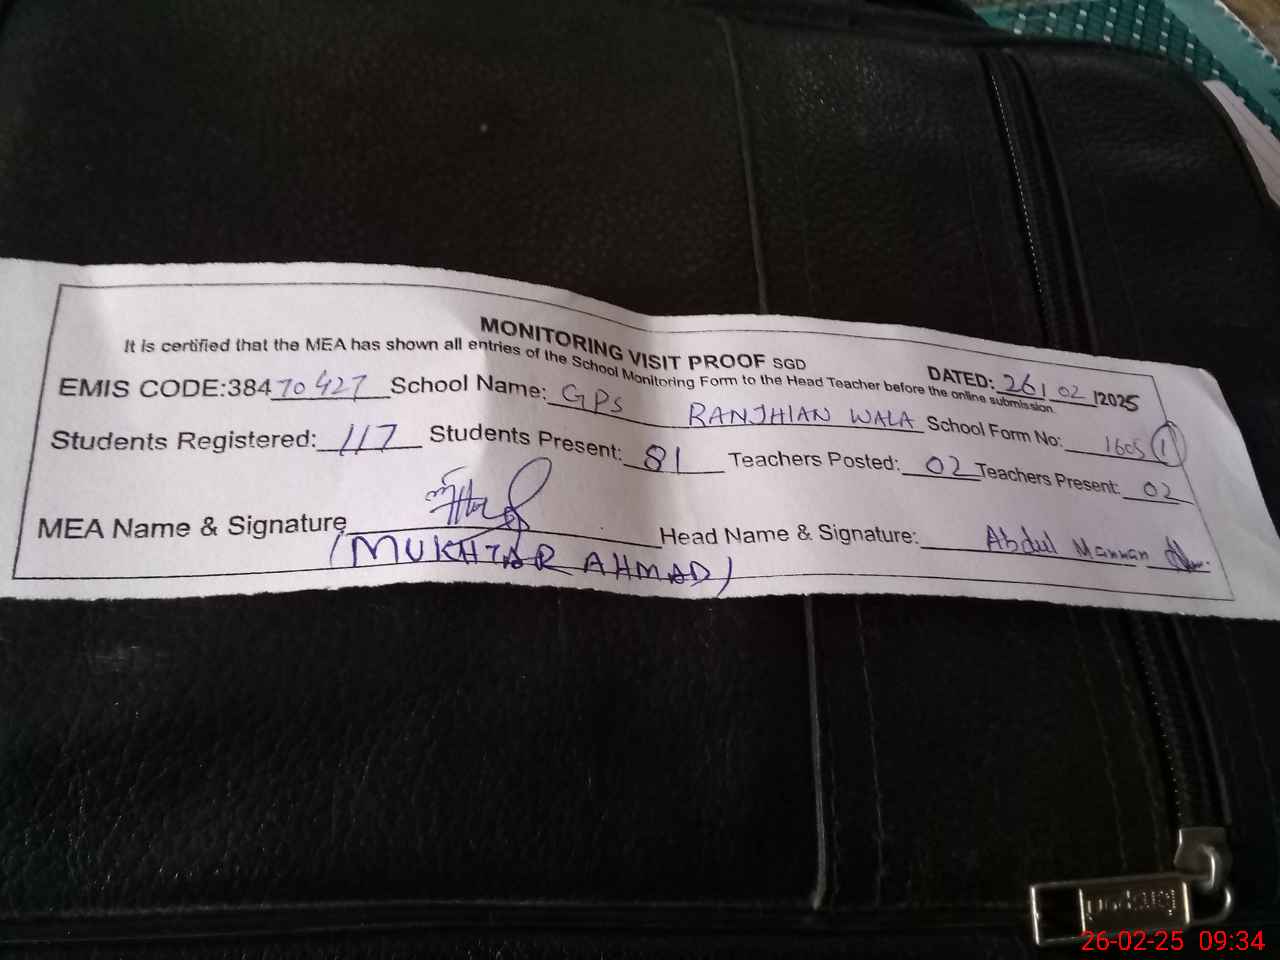 MONITORING VISIT PROOF SGD
DATED: 26/02/2025
It is certified that the MEA has shown all entries of the School Monitoring Form to the Head Teacher before the online submission.
EMIS CODE:38470427 School Name: GPS RANJHIAN WALA School Form No: 1605 1
Students Registered: 117 Students Present: 81 Teachers Posted: 02 Teachers Present: 02
MEA Name & Signature
Head Name & Signature: Abdul Mannan
(MUKHTAR AHMAD)
26-02-25 09:34